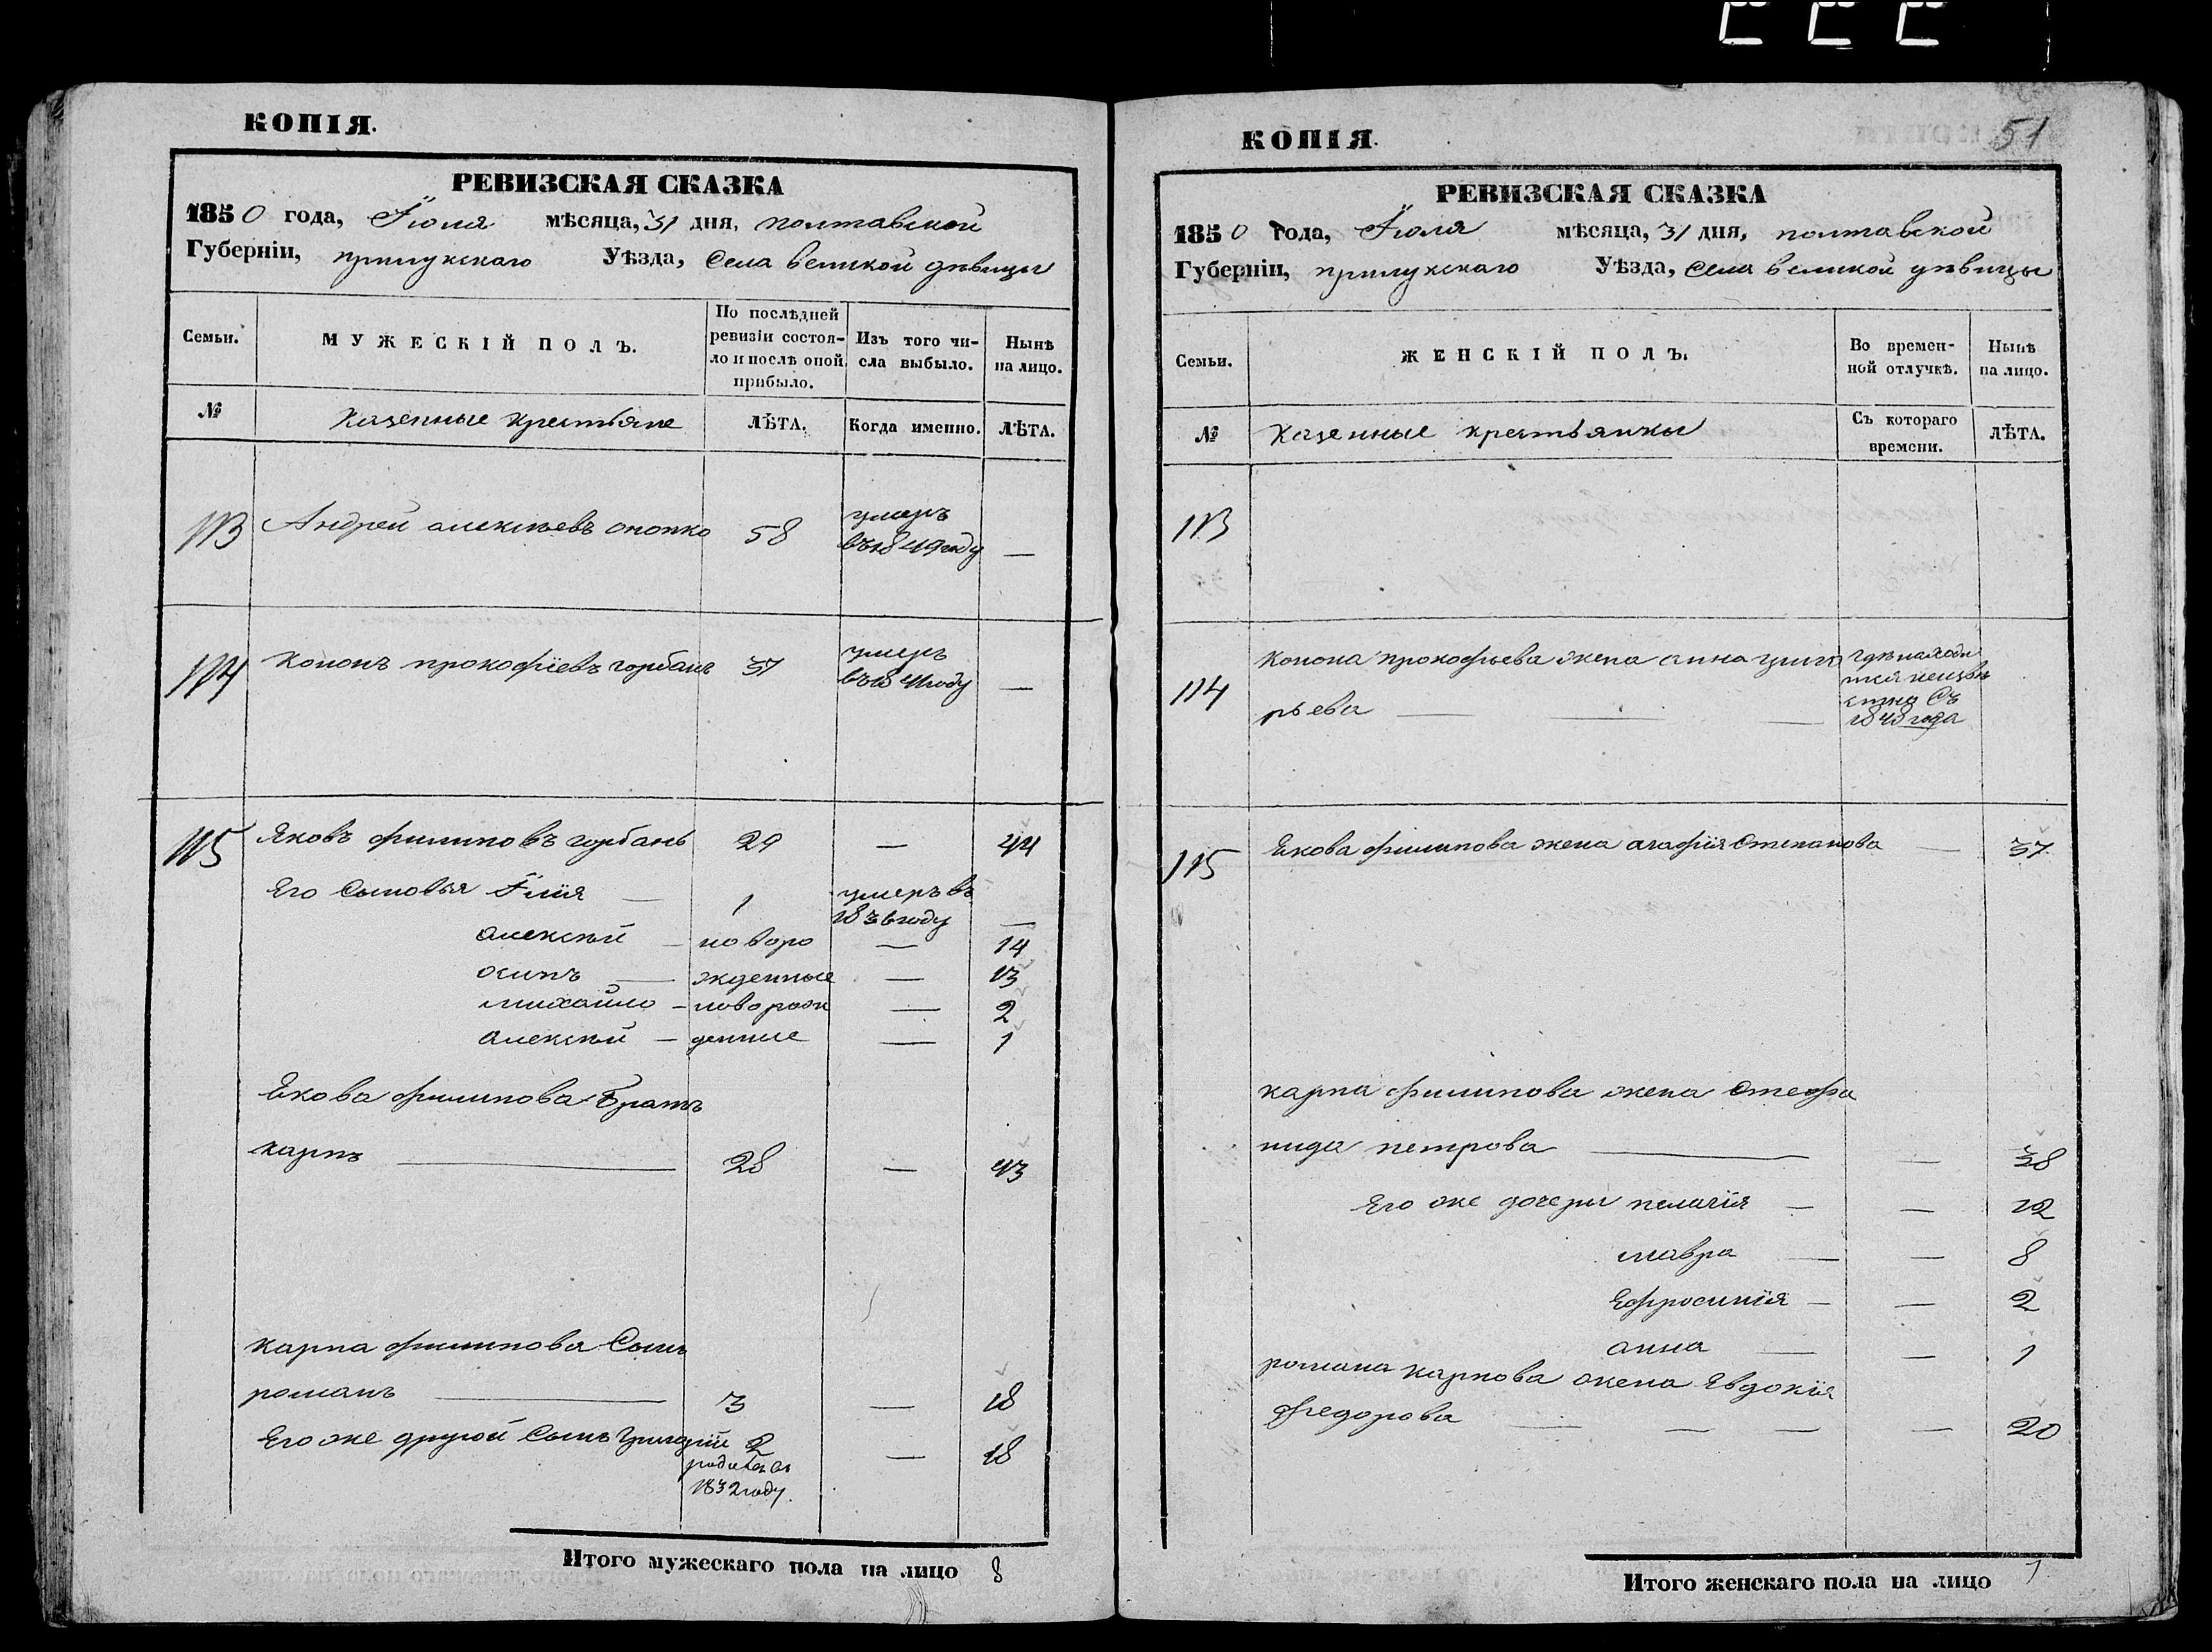 КОПІЯ.
РЕВИЗСКАЯ СКАЗКА
1850 года, Іюля мѣсяца, 31 дня, полтавской
Губерніи, прилукскаго Уѣзда, Села великой дѣвицы
Семьи.
МУЖЕСКІЙ ПОЛЪ.
По послѣдней ревизіи состоя-
ло и послѣ оной прибыло.
Изъ того чи-
сла выбыло.
Нынѣ
на лицо.
№
Казенные крестьяне
ЛѢТА.
Когда именно.
ЛѢТА.
113 Андрей алексѣевъ 58 умеръ
въ 1849 году —
114 Кононъ прокофіевъ горбань 37 умеръ
въ 1841 году —
115 Яковъ филиповъ горбань 29 — 44
Его Сыновья Илія — 1 умеръ въ
1836 году —
алексѣй — новоро — 14
осипъ — жденные — 13
михайло — новорож — 2
алексѣй — денные — 1
Якова филипова братъ
карпъ — 28 — 43
карпа филипова Сынъ
романъ — 3 — 18
Его же другой Сынъ григорій 2 — 18
родился въ
1832 году.
Итого мужескаго пола на лицо 8
51
КОПІЯ.
РЕВИЗСКАЯ СКАЗКА
1850 года, Іюля мѣсяца, 31 дня, полтавской
Губерніи, прилукскаго Уѣзда, Села великой дѣвицы
Семьи.
ЖЕНСКІЙ ПОЛЪ.
Во времен-
ной отлучкѣ.
Нынѣ
на лицо.
№
Казенные крестьянки
Съ котораго
времени.
ЛѢТА.
113
114 Конона прокофьева жена анна григо
рьева — — —
гдѣ находи
тся неизвѣ
стно Съ
1848 года
115 Якова филипова жена агафія Степанова — 37
карпа филипова жена Стефа
нида петрова — — 38
Его же дочери пелагія — — 12
мавра — — 8
Ефросинія — — 2
анна — — 1
романа карпова жена Евдокія
федорова — — — — 20
Итого женскаго пола на лицо 7